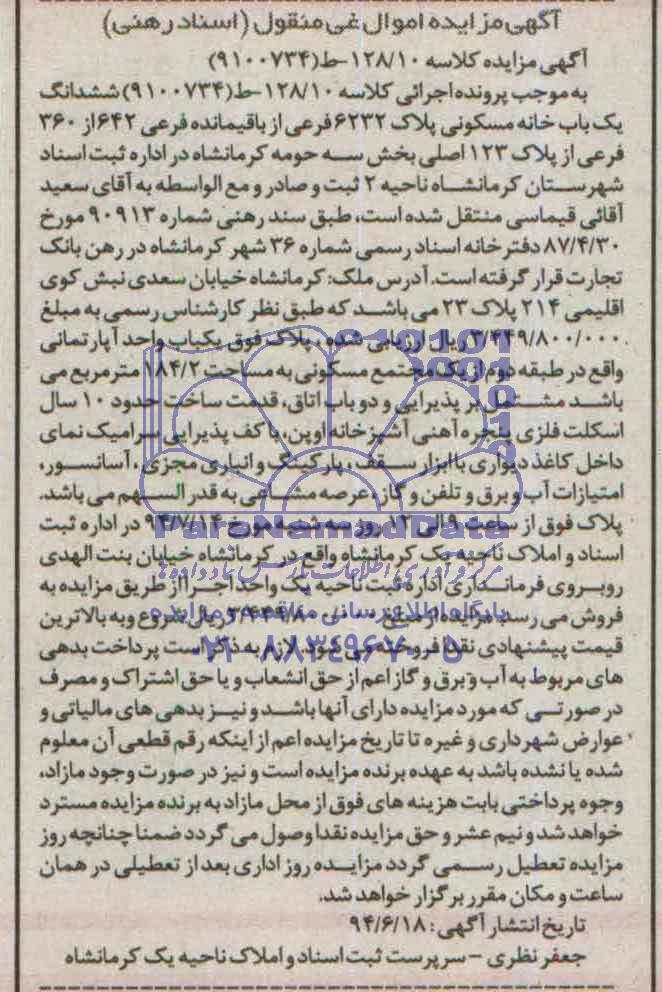 آگهی مزایده اموال غی منقول (اسناد رهنی)
آگهی مزایده کلاسه ۱۲۸/۱۰-ط(۹۱۰۰۷۳۴)
به موجب پرونده اجرائی کلاسه ۱۲۸/۱۰-ط(۹۱۰۰۷۳۴) ششدانگ
یک باب خانه مسکونی پلاک ۶۲۳۲ فرعی از باقیمانده فرعی ۶۴۲ از ۳۶۰
فرعی از پلاک ۱۲۳ اصلی بخش سه حومه کرمانشاه در اداره ثبت اسناد
شهرستان کرمانشاه ناحیه ۲ ثبت و صادر و مع الواسطه به آقای سعید
آقائی قیماسی منتقل شده است، طبق سند رهنی شماره ۹۰۹۱۳ مورخ
۸۷/۴/۳۰ دفترخانه اسناد رسمی شماره ۳۶ شهر کرمانشاه در رهن بانک
تجارت قرار گرفته است. آدرس ملک: کرمانشاه خیابان سعدی نبش کوی
اقلیمی ۲۱۴ پلاک ۲۳ می باشد که طبق نظر کارشناس رسمی به مبلغ
۳/۴۴۹/۸۰۰/۰۰۰ ریال ارزیابی شده، پلاک فوق یکباب واحد آپارتمانی
واقع در طبقه دوم از یک مجتمع مسکونی به مساحت ۱۸۴/۲ متر مربع می
باشد مشتمل بر پذیرایی و دو باب اتاق، قدمت ساخت حدود ۱۰ سال
اسکلت فلزی پنجره آهنی آشپزخانه اوپن، با کف پذیرایی سرامیک نمای
داخل کاغذ دیواری با ابزار سقف، پارکینگ و انباری مجزی، آسانسور،
امتیازات آب و برق و تلفن و گاز، عرصه مشاعی به قدر السهم می باشد.
پلاک فوق از ساعت ۹ الی ۱۲ روز سه شنبه مورخ ۹۴/۷/۱۴ در اداره ثبت
اسناد و املاک ناحیه یک کرمانشاه واقع در کرمانشاه خیابان بنت الهدی
روبروی فرمانداری اداره ثبت ناحیه یک واحد اجرا از طریق مزایده به
فروش می رسد. مزایده از مبلغ ۳/۴۴۹/۸۰۰/۰۰۰ ریال شروع و به بالاترین
قیمت پیشنهادی نقدا فروخته می شود. لازم به ذکر است پرداخت بدهی
های مربوط به آب و برق و گاز اعم از حق انشعاب و یا حق اشتراک و مصرف
در صورتی که مورد مزایده دارای آنها باشد و نیز بدهی های مالیاتی و
عوارض شهرداری و غیره تا تاریخ مزایده اعم از اینکه رقم قطعی آن معلوم
شده یا نشده باشد به عهده برنده مزایده است و نیز در صورت وجود مازاد،
وجوه پرداختی بابت هزینه های فوق از محل مازاد به برنده مزایده مسترد
خواهد شد و نیم عشر و حق مزایده نقدا وصول می گردد ضمنا چنانچه روز
مزایده تعطیل رسمی گردد مزایده روز اداری بعد از تعطیلی در همان
ساعت و مکان مقرر برگزار خواهد شد.
تاریخ انتشار آگهی: ۹۴/۶/۱۸
جعفر نظری - سرپرست ثبت اسناد و املاک ناحیه یک کرمانشاه
ParsNamadData
مرکز فرآوری اطلاعات پارس نماد داده ها
پایگاه اطلاع رسانی مناقصه و مزایده
۰۲۱-۸۸۳۴۹۶۷۰-۵